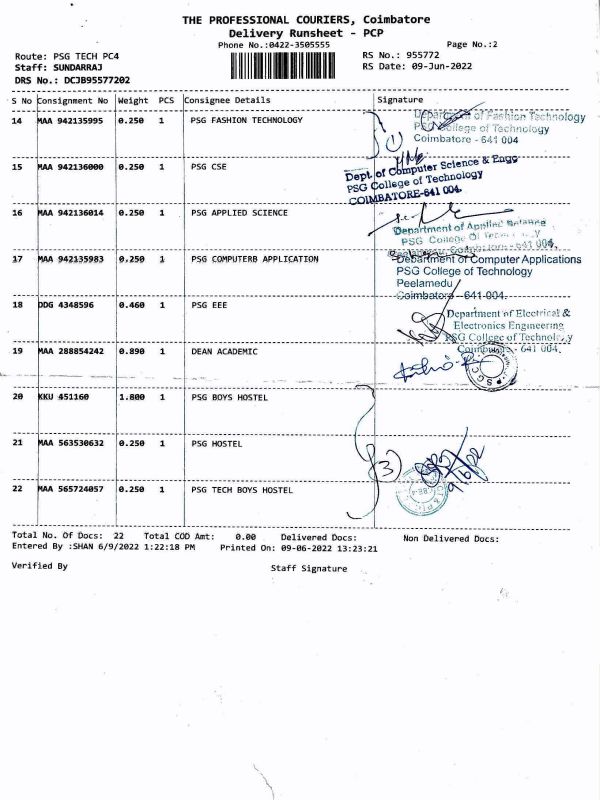 THE PROFESSIONAL COURIERS, Coimbatore
Delivery Runsheet - PCP
Phone No.:0422-3505555
Page No.:2
Route: PSG TECH PC4
RS No.: 955772
Staff: SUNDARRAJ
RS Date: 09-Jun-2022
DRS No.: DCJB95577202
S No Consignment No Weight PCS Consignee Details Signature
14 MAA 942135995 0.250 1 PSG FASHION TECHNOLOGY
Department of Fashion Technology
PSG College of Technology
Coimbatore - 641 004
1
15 MAA 942136000 0.250 1 PSG CSE
Dept. of Computer Science & Engg
PSG College of Technology
COIMBATORE-641 004.
16 MAA 942136014 0.250 1 PSG APPLIED SCIENCE
Department of Applied Science
PSG College Of
641 004.
17 MAA 942135983 0.250 1 PSG COMPUTERB APPLICATION
Department of Computer Applications
PSG College of Technology
Peelamedu
Coimbatore - 641 004.
18 DDG 4348596 0.460 1 PSG EEE
Department of Electrical &
Electronics Engineering
PSG College of Technology
Coimbatore - 641 004.
19 MAA 288854242 0.890 1 DEAN ACADEMIC
20 KKU 451160 1.800 1 PSG BOYS HOSTEL
21 MAA 563530632 0.250 1 PSG HOSTEL
3
9/6/22
22 MAA 565724057 0.250 1 PSG TECH BOYS HOSTEL
Total No. Of Docs: 22 Total COD Amt: 0.00 Delivered Docs: Non Delivered Docs:
Entered By :SHAN 6/9/2022 1:22:18 PM Printed On: 09-06-2022 13:23:21
Verified By
Staff Signature